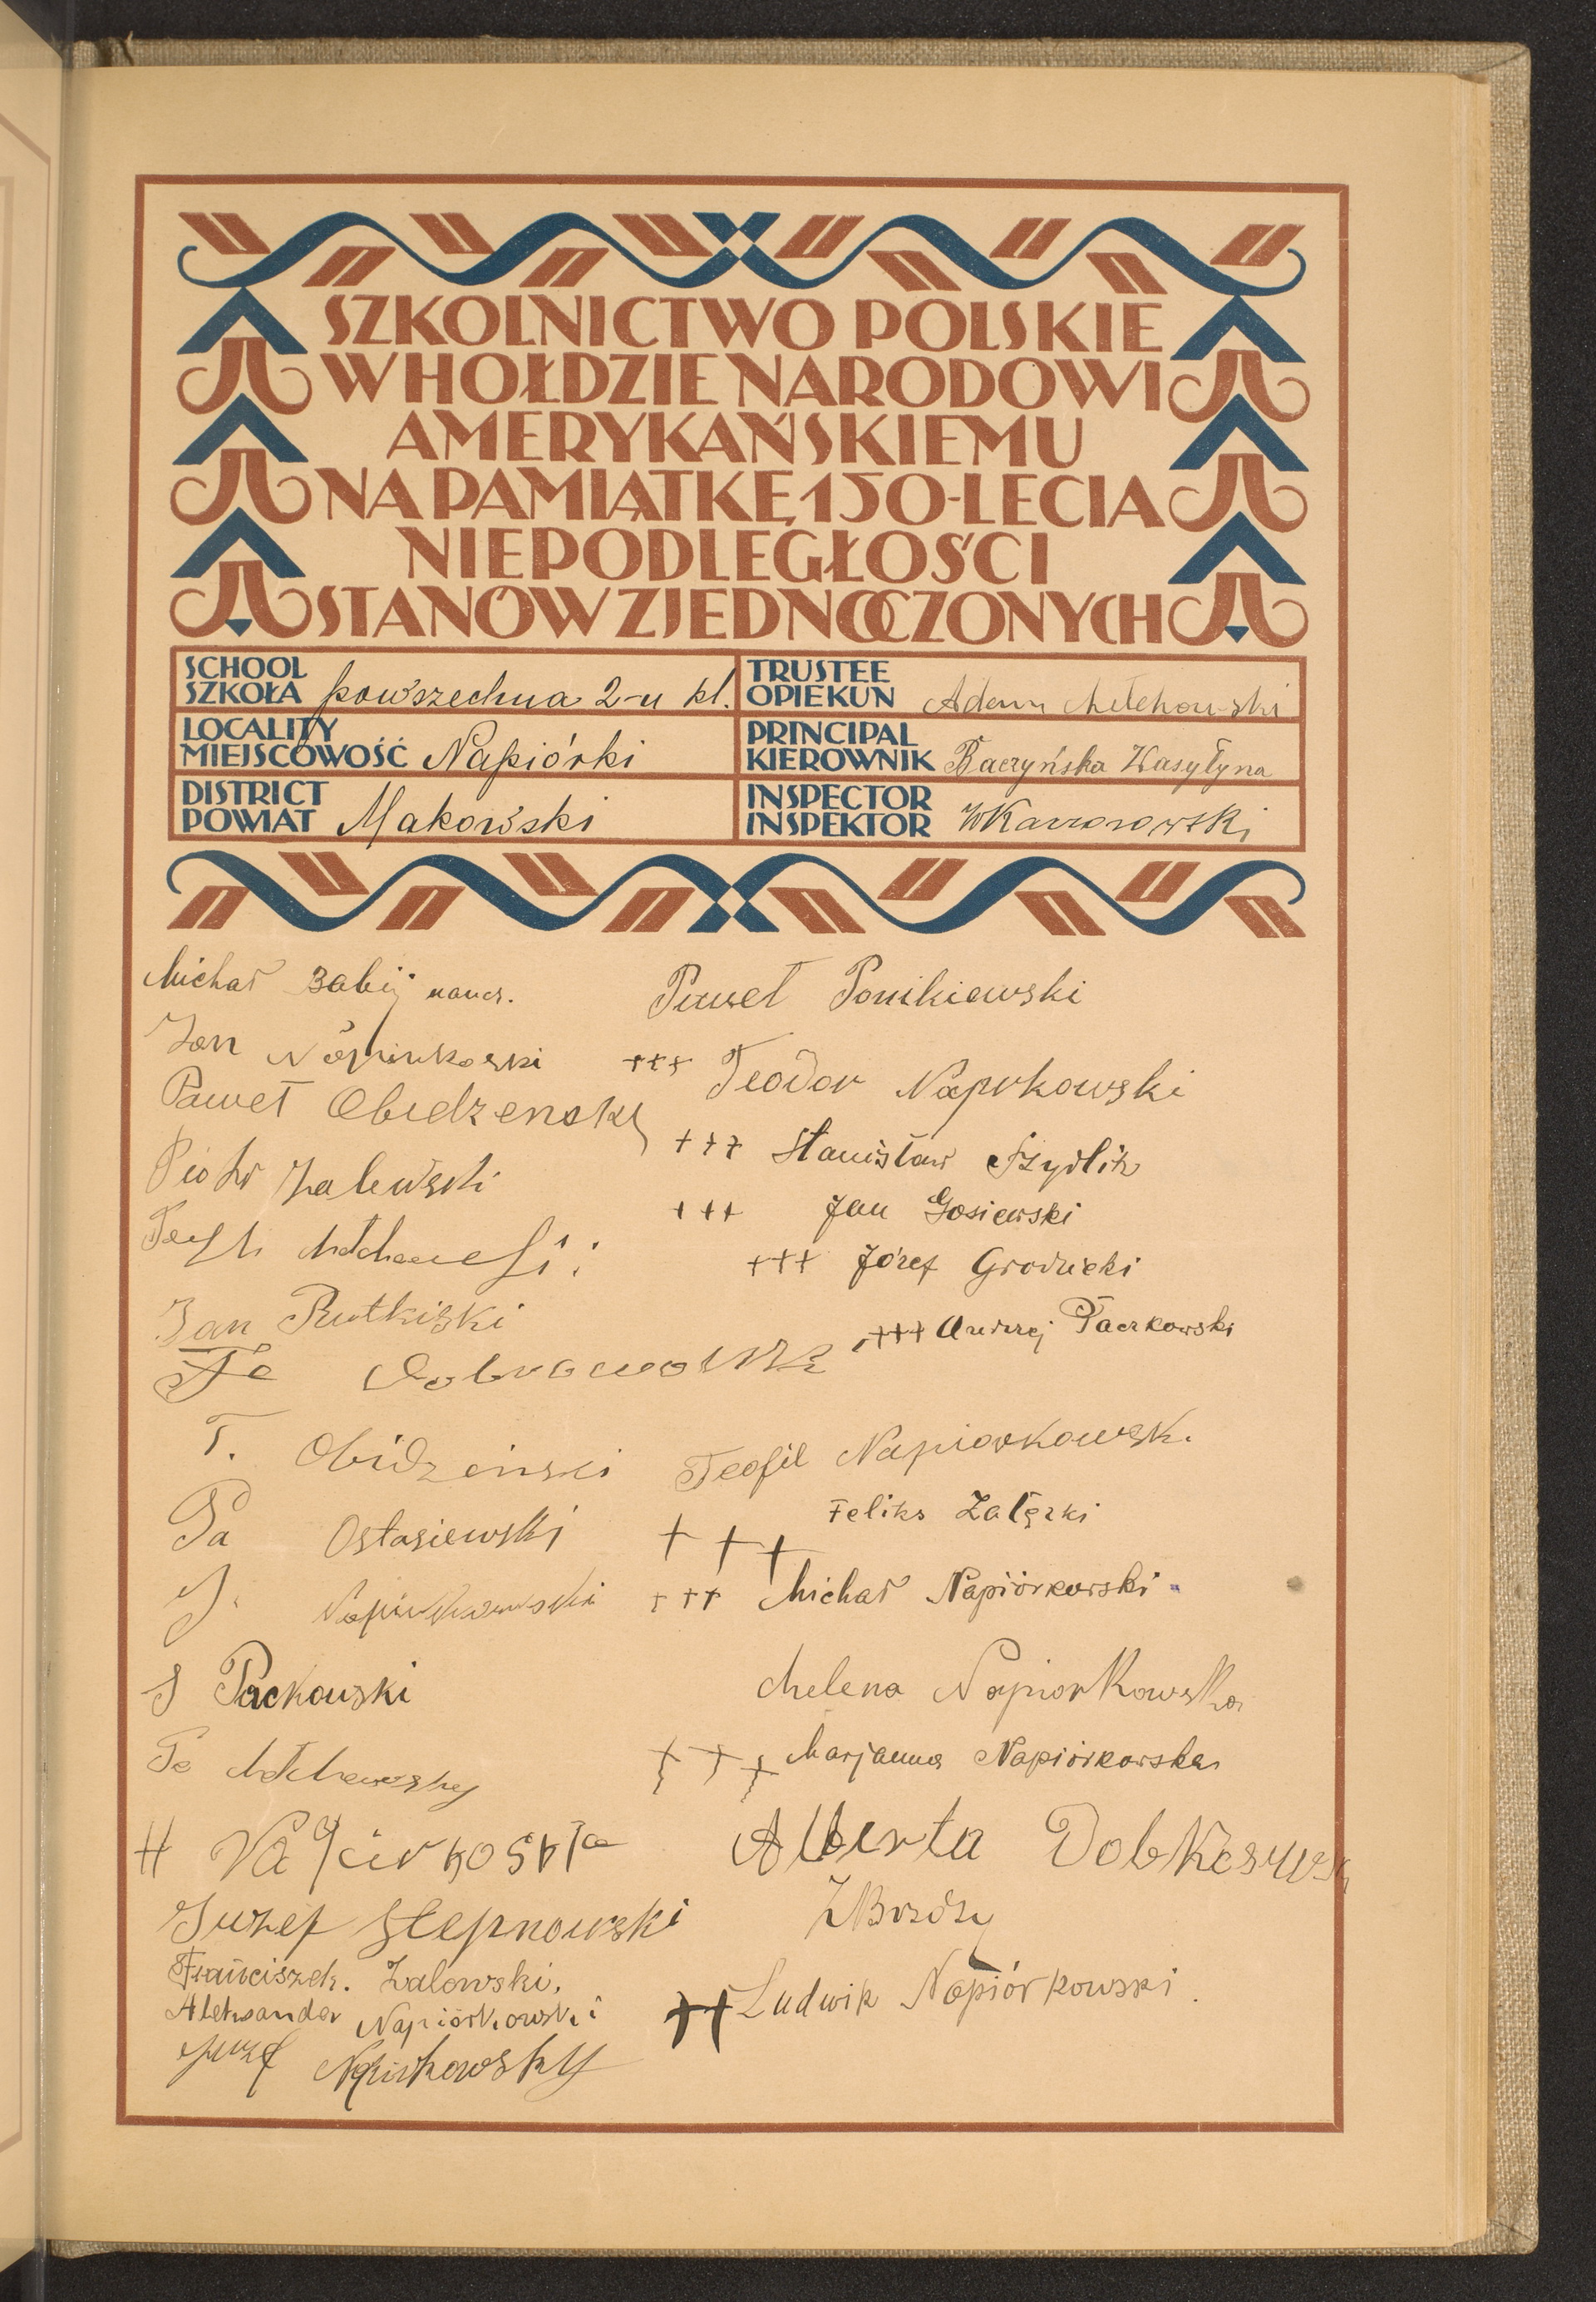 SZKOLNICTWO POLSKIE
W HOŁDZIE NARODOWI
AMERYKAŃSKIEMU
NA PAMIĄTKĘ 150-LECIA
NIEPODLEGŁOŚCI
STANÓW ZJEDNOCZONYCH
SCHOOL
SZKOŁA powszechna 2-u kl.
TRUSTEE
OPIEKUN Adam
LOCALITY
MIEJSCOWOŚĆ Napiórki
PRINCIPAL
KIEROWNIK Baczyńska Wasyłyna
DISTRICT
POWIAT Makowski
INSPECTOR
INSPEKTOR
Michał Babij naucz.
Jan
Paweł Obidzenski
Piotr Zalewski
Jan Rutkiski
Fe
T. Obidzinski
Pa Ostasiewski
J.
S Packowski
Te
H
Juzef Stepnowski
Franciszek. Zalowski.
Aleksander Napiórkowski
Juzef
Paweł Ponikiewski
+++ Teodor Naprkowski
+++ Stanisław Szydlik
+++ Jan Gosiewski
+++ Józef Grodzicki
+++ Andrzej Paczkowski
Teofil Napiorkowsk.
Feliks Załęzki
+++
+++ Michał Napiórkowski
Helena Napiorkowska
+++ Marjanna Napiórkowska
Alberta
++ Ludwik Napiórkowski.